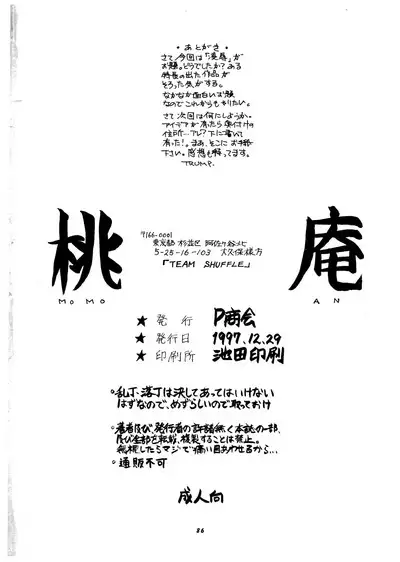 ・あとがき・
さて今回は「美唇」が
お題。どうでしたか？ある
特長の出た作品が
そろった気がする。
なかなか面白いお題
なのでこれからもやりたい。
さて次回は何にしようか。
アイデアが有ったら奥付けの
住所…アレ？下に書いて
有った！まあ、そこにお手紙
下さい。感想も待ってます。
TRUMP.
桃庵
MOMO AN
〒166-0001
東京都 杉並区 阿佐ヶ谷北
5-25-16-103 大久保様方
「TEAM SHUFFLE」
★ 発行 P商会
★ 発行日 1997.12.29
★ 印刷所 池田印刷
○乱丁・落丁は決してあってはいけない
はずなので、めずらしいので取っておけ
○著者及び、発行者の許諾無く本誌の一部、
及び全部を転載、複製することは禁止。
無視したらマジで痛い目あわせるから…
○通販不可
成人向
86